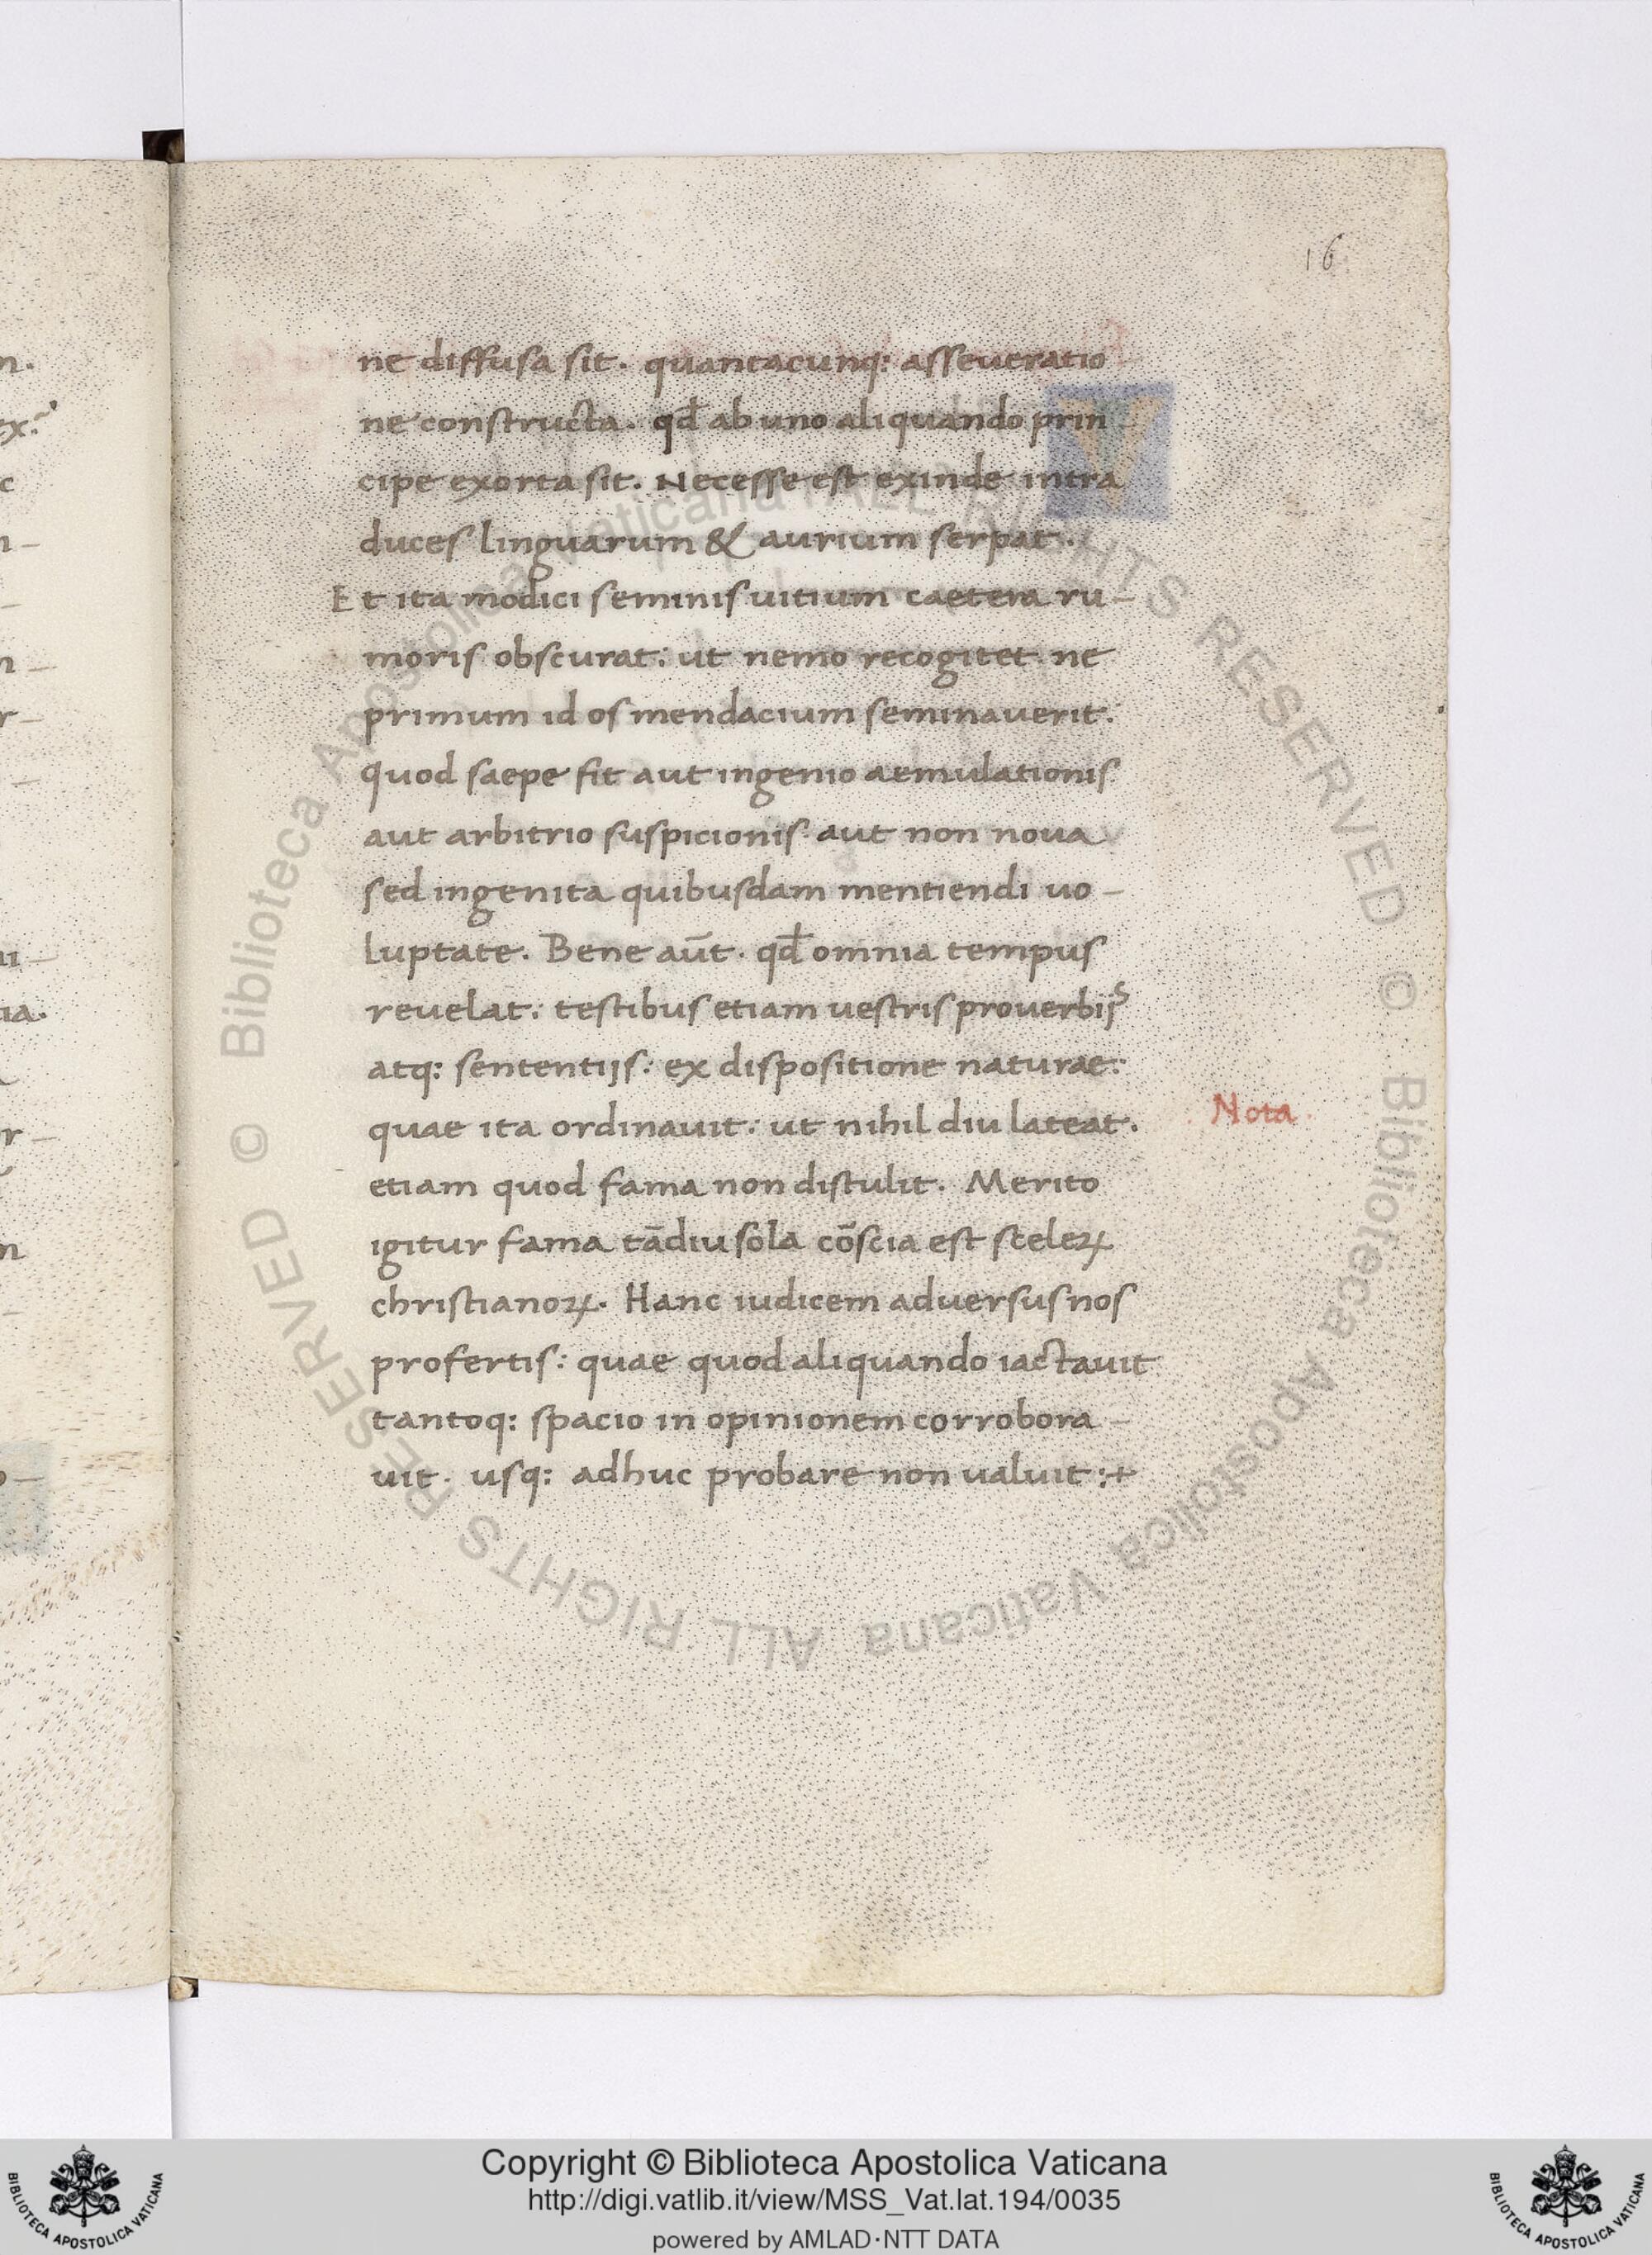 16
ne diffusa sit. quantacunq: asseueratio
ne constructa. qd̄ ab uno aliquando prin
cipe exorta sit. Necesse est exinde intra
duces linguarum & aurium serpat.
Et ita modici seminis uitium caetera ru-
moris obscurat: ut nemo recogitet ne
primum id os mendacium seminauerit:
quod saepe fit aut ingenio aemulationis
aut arbitrio suspicionis aut non noua
sed ingenita quibusdam mentiendi uo-
luptate. Bene aūt. qd̄ omnia tempus
reuelat: testibus etiam uestris prouerbijs
atq: sententijs: ex dispositione naturae:
quae ita ordinauit: ut nihil diu lateat.
Nota.
etiam quod fama non distulit. Merito
igitur fama tādiu sola cōscia est sceleꝝ
christianoꝝ. Hanc iudicem aduersus nos
profertis: quae quod aliquando iactauit
tantoq: spacio in opinionem corrobora-
uit. usq: adhuc probare non ualuit:+
© Biblioteca Apostolica Vaticana ALL RIGHTS RESERVED © Biblioteca Apostolica Vaticana ALL RIGHTS RESERVED
Copyright © Biblioteca Apostolica Vaticana
http://digi.vatlib.it/view/MSS_Vat.lat.194/0035
powered by AMLAD·NTT DATA
BIBLIOTECA APOSTOLICA VATICANA
BIBLIOTECA APOSTOLICA VATICANA